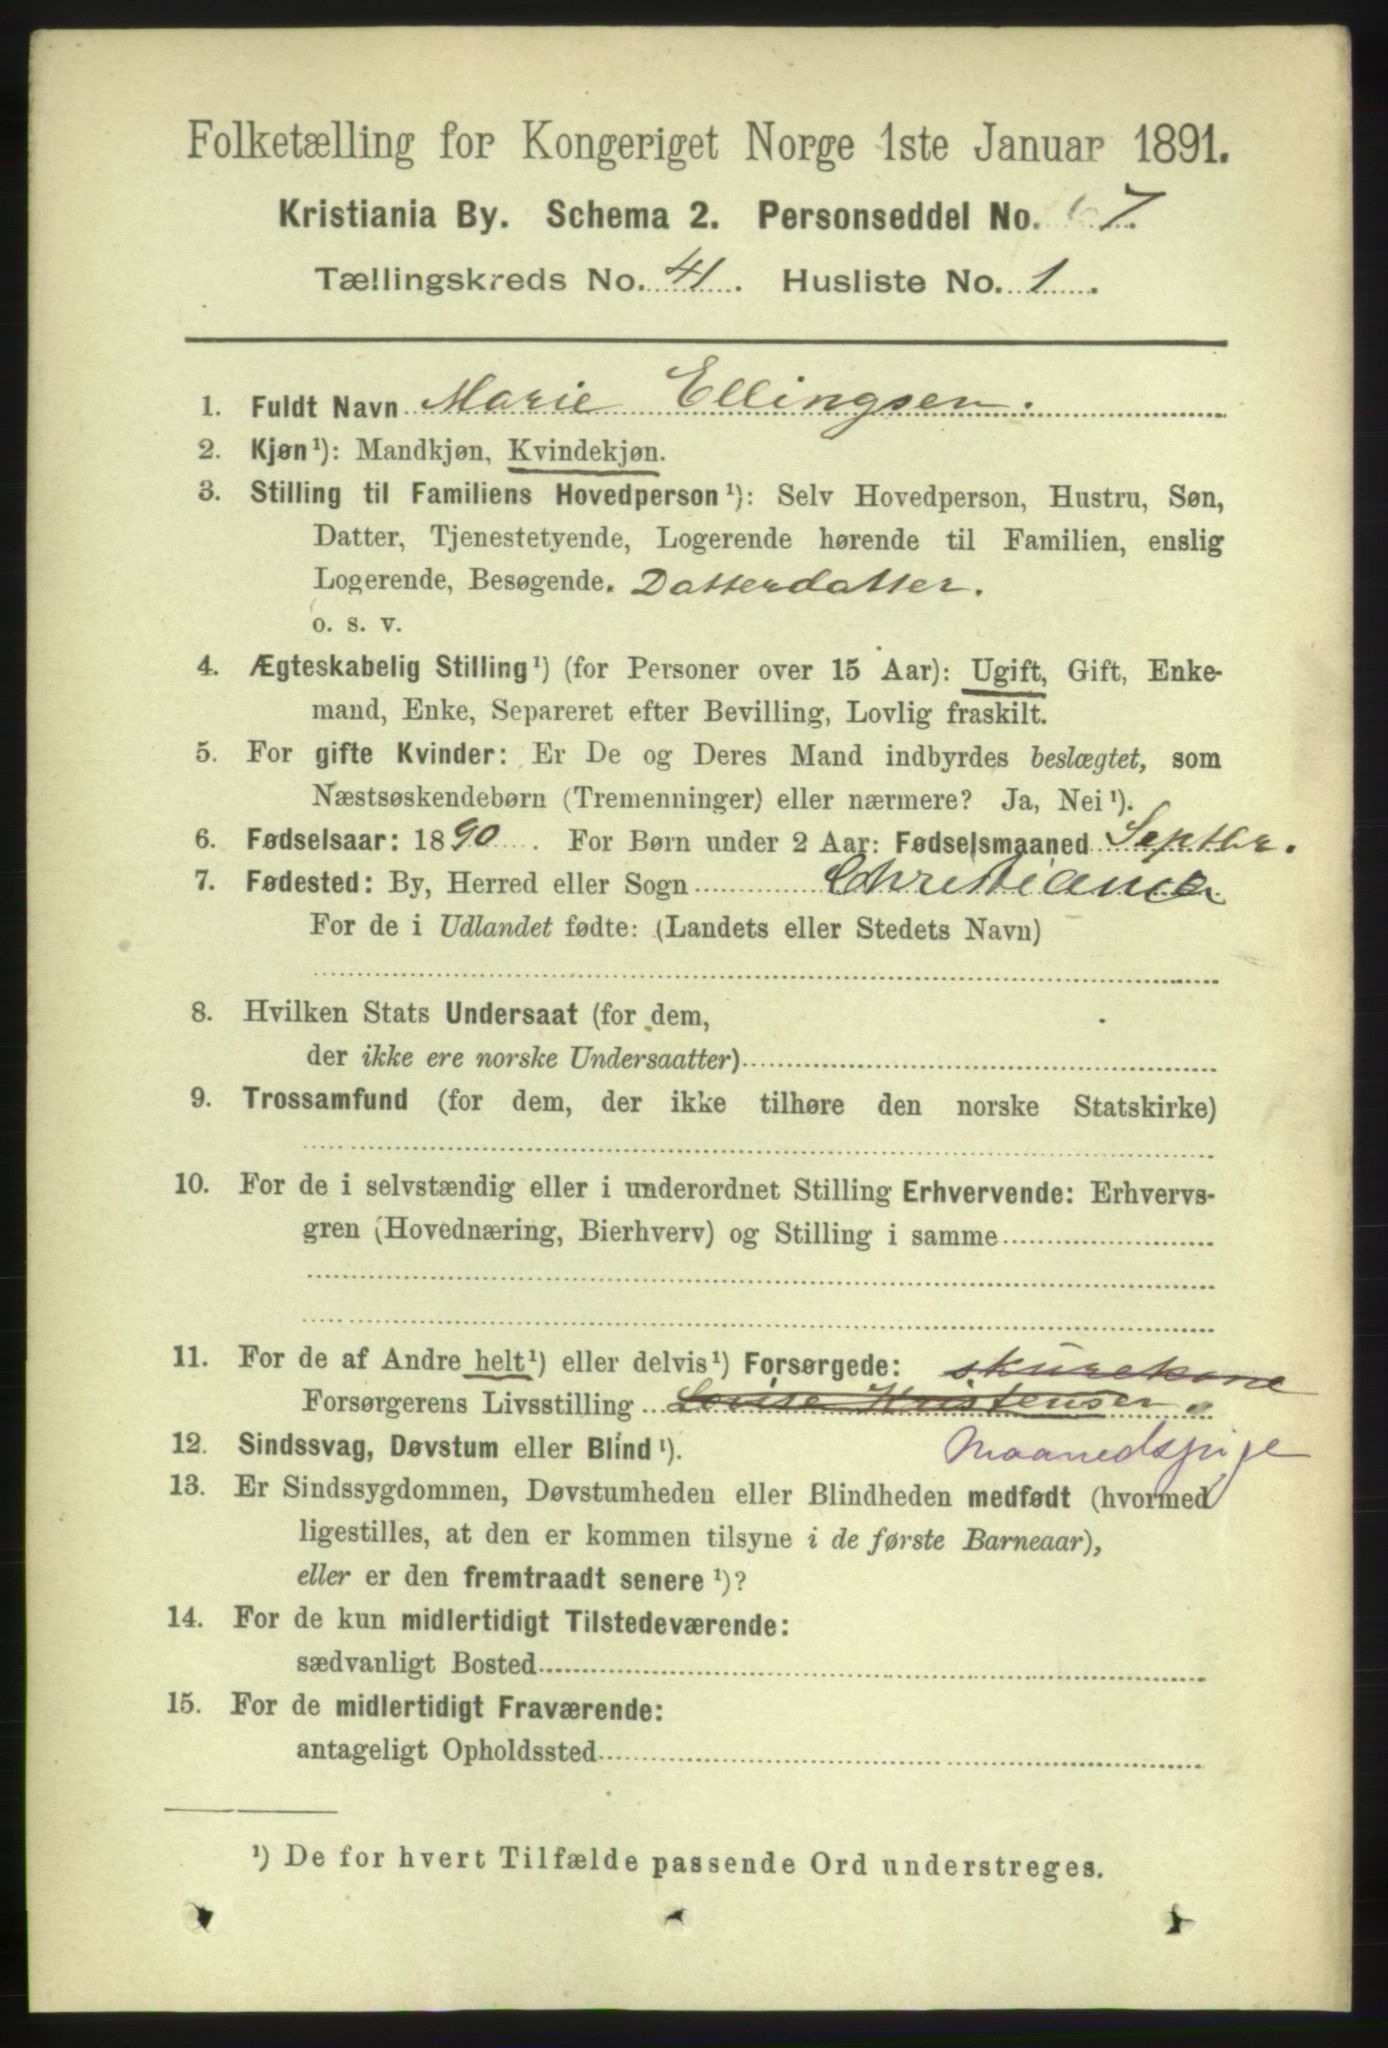 Folketælling for Kongeriget Norge 1ste Januar 1891.
Kristiania By. Schema 2. Personseddel No. 7
Tællingskreds No. 41. Husliste No. 1.
1. Fuldt Navn Marie Ellingsen.
2. Kjøn¹): Mandkjøn, Kvindekjøn.
3. Stilling til Familiens Hovedperson¹): Selv Hovedperson, Hustru, Søn,
Datter, Tjenestetyende, Logerende hørende til Familien, enslig
Logerende, Besøgende. Datterdatter.
o. s. v.
4. Ægteskabelig Stilling¹) (for Personer over 15 Aar): Ugift, Gift, Enke-
mand, Enke, Separeret efter Bevilling, Lovlig fraskilt.
5. For gifte Kvinder: Er De og Deres Mand indbyrdes beslægtet, som
Næstsøskendebørn (Tremenninger) eller nærmere? Ja, Nei¹).
6. Fødselsaar: 1890. For Børn under 2 Aar: Fødselsmaaned Septbr.
7. Fødested: By, Herred eller Sogn Christiania
For de i Udlandet fødte: (Landets eller Stedets Navn)
8. Hvilken Stats Undersaat (for dem,
der ikke ere norske Undersaatter)
9. Trossamfund (for dem, der ikke tilhøre den norske Statskirke)
10. For de i selvstændig eller i underordnet Stilling Erhvervende: Erhvervs-
gren (Hovednæring, Bierhverv) og Stilling i samme
11. For de af Andre helt¹) eller delvis¹) Forsørgede: skurekone
Forsørgerens Livsstilling Lovise Kristensen.
Maanedspige
12. Sindssvag, Døvstum eller Blind¹).
13. Er Sindssygdommen, Døvstumheden eller Blindheden medfødt (hvormed
ligestilles, at den er kommen tilsyne i de første Barneaar),
eller er den fremtraadt senere¹)?
14. For de kun midlertidigt Tilstedeværende:
sædvanligt Bosted
15. For de midlertidigt Fraværende:
antageligt Opholdssted
¹) De for hvert Tilfælde passende Ord understreges.